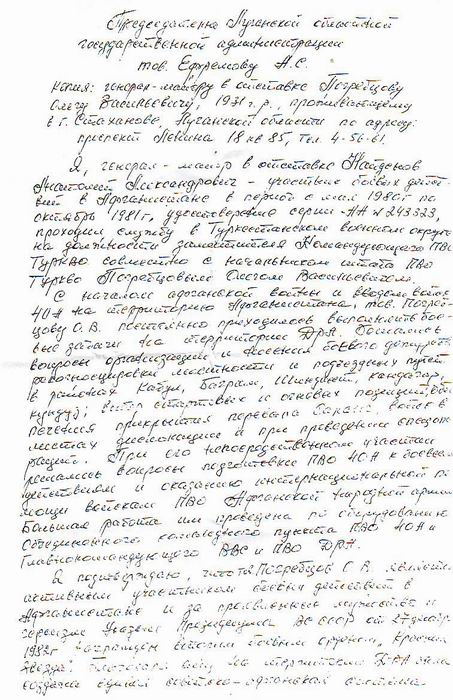 Председателю Луганской областной
государственной администрации
тов. Ефремову А.С.
Копия: генерал-майору в отставке Погребцову
Олегу Васильевичу, 1931 г.р., проживающему
в г. Стаханове, Луганской области по адресу:
проспект Ленина 18 кв 85, тел. 4-56-61.
Я, генерал-майор в отставке Найденов
Анатолий Александрович - участник боевых дейст-
вий в Афганистане в период с мая 1980 г по
октябрь 1981 г, удостоверение серии АА № 243333,
проходил службу в Туркестанском военном округе
на должности заместителя Командующего ПВО
ТуркВО совместно с начальником штаба ПВО
ТуркВО Погребцовым Олегом Васильевичем.
С началом афганской войны и вводом войск
40А на территорию Афганистана, тов. Погреб-
цову О.В. постоянно приходилось выполнять бое-
вые задачи на территории ДРА. Решались
вопросы организации и несения боевого дежурства
рекогносцировки местности и подъездных путей
в районах Кабул, Баграм, Шинданд, Кандагар,
Кундуз; стартовых и огневых позиций,
печения прикрытия перевала Саланг, войск в
местах дислокации и при проведении операц
раций. При его непосредственном участии
решались вопросы подготовки ПВО 40А к боевым
действиям и оказанию интернациональной по-
мощи войскам ПВО Афганской народной армии
Большая работа им проведена по оборудованию
Объединённого командного пункта ПВО 40А и
Главнокомандующего ВВС и ПВО ДРА.
Я подтверждаю, что тов. Погребцов О.В. является
активным участником боевых действий в
Афганистане и за проявленные мужество и
героизм Указом Президиума ВС СССР от
1982 г награждён вторым боевым орденом, Красной
Звезды. Благодаря ему на территории ДРА была
создана единая советско-афганская система